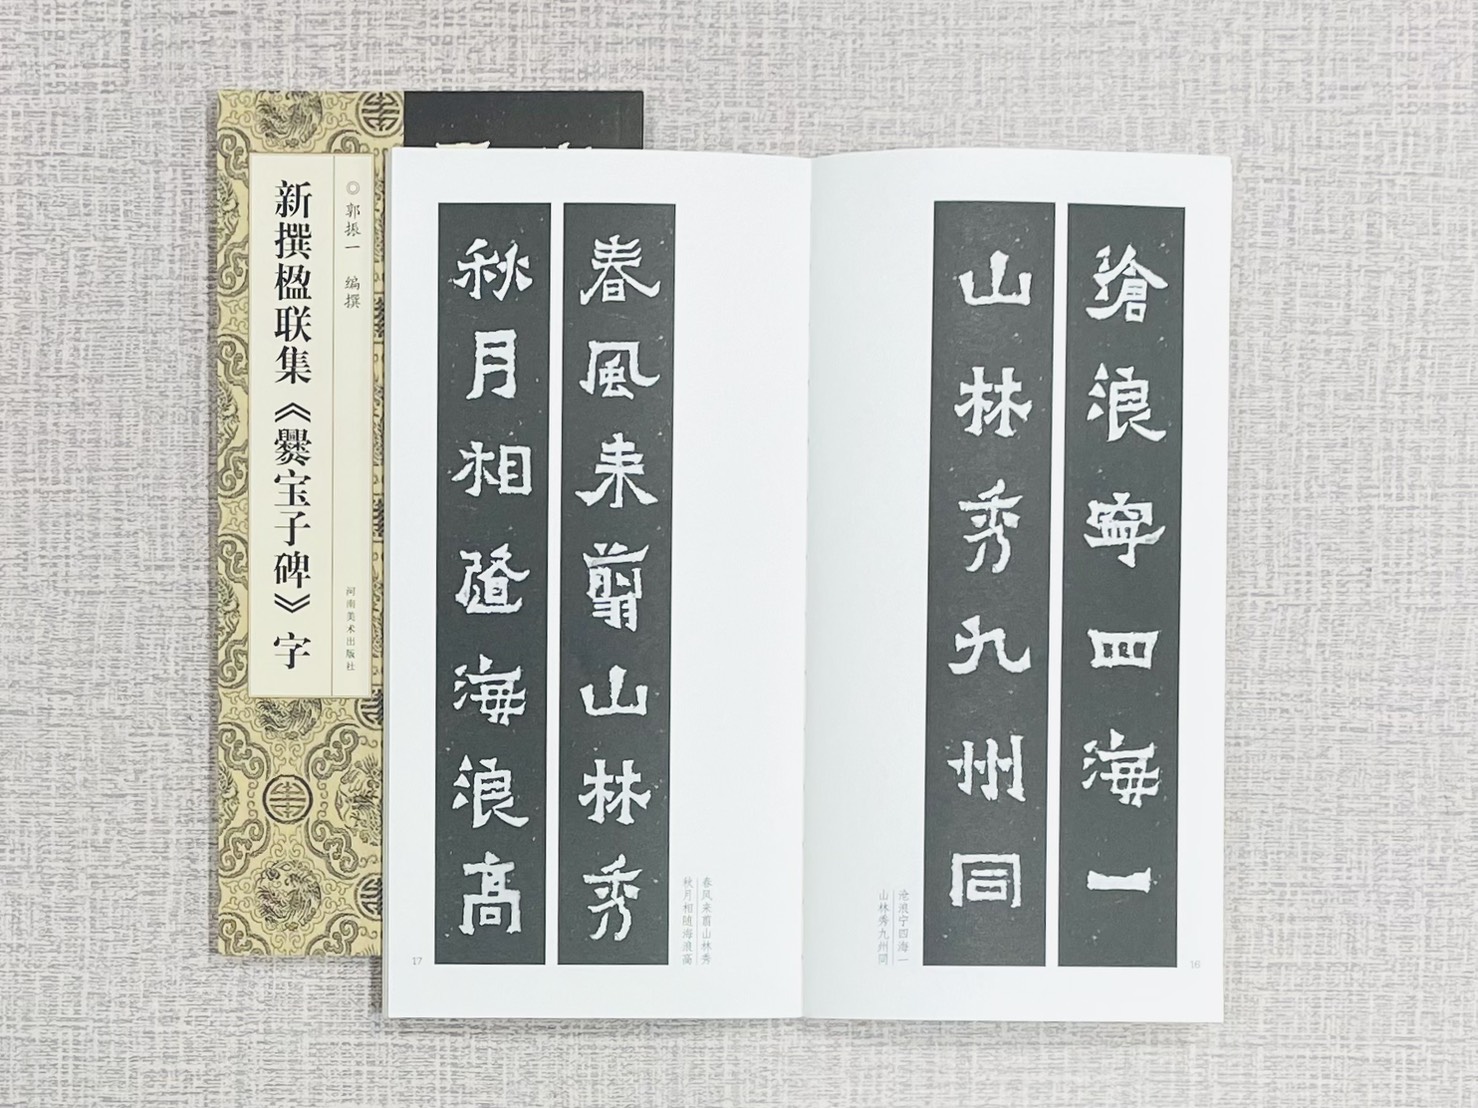 新撰楹联集《爨宝子碑》字
◎郭振一 编撰
河南美术出版社
滄浪寧四海一
山林秀九州同
沧浪宁四海一
山林秀九州同
16
春風来翦山林秀
秋月相隨海浪高
春风来翦山林秀
秋月相随海浪高
17